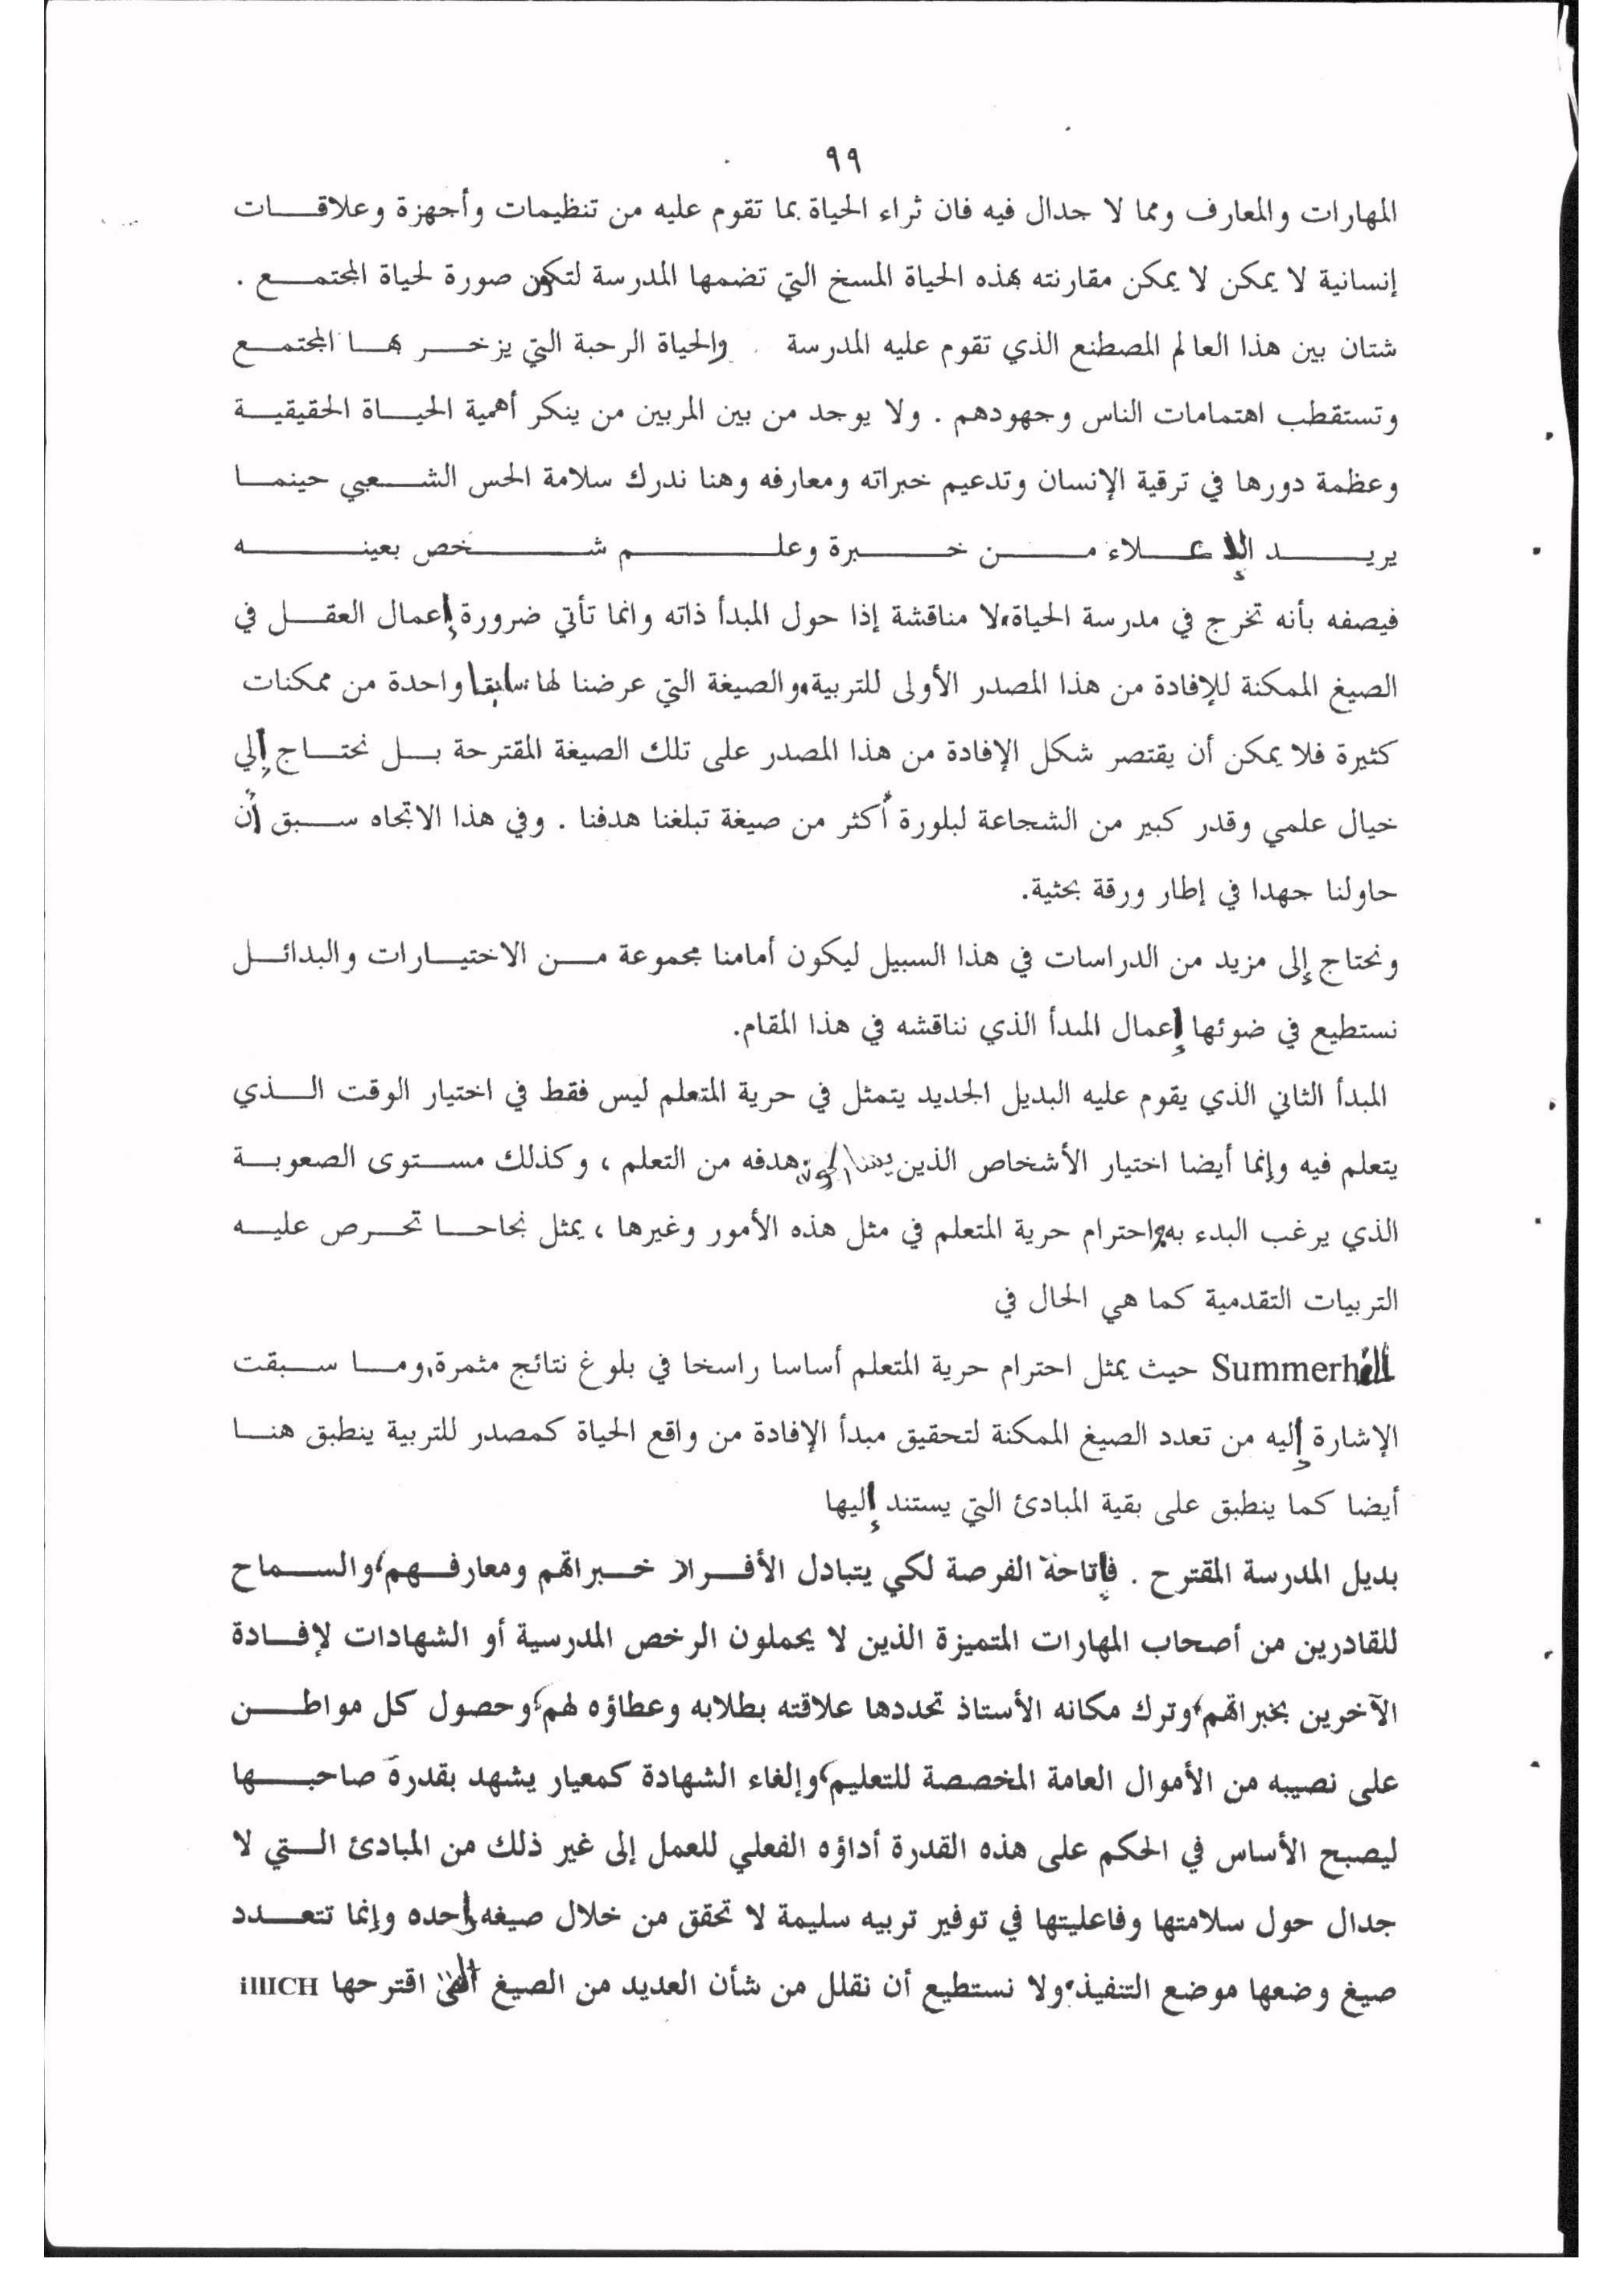 ٩٩
المهارات والمعارف ومما لا جدال فيه فان ثراء الحياة بما تقوم عليه من تنظيمات وأجهزة وعلاقات
إنسانية لا يمكن لا يمكن مقارنته بهذه الحياة المسخ التي تضمها المدرسة لتكون صورة لحياة المجتمع .
شتان بين هذا العالم المصطنع الذي تقوم عليه المدرسة والحياة الرحبة التي يزخر بها المجتمع
وتستقطب اهتمامات الناس وجهودهم . ولا يوجد من بين المربين من ينكر أهمية الحياة الحقيقية
وعظمة دورها في ترقية الإنسان وتدعيم خبراته ومعارفه وهنا ندرك سلامة الحس الشعبي حينما
يريد الإعلاء من خبرة وعلم شخص بعينه
فيصفه بأنه تخرج في مدرسة الحياة، لا مناقشة إذا حول المبدأ ذاته وانما تأتي ضرورة إعمال العقل في
الصيغ الممكنة للإفادة من هذا المصدر الأولى للتربية، والصيغة التي عرضنا لها سابقا واحدة من ممكنات
كثيرة فلا يمكن أن يقتصر شكل الإفادة من هذا المصدر على تلك الصيغة المقترحة بل نحتاج إلي
خيال علمي وقدر كبير من الشجاعة لبلورة أكثر من صيغة تبلغنا هدفنا . وفي هذا الاتجاه سبق أن
حاولنا جهدا في إطار ورقة بحثية.
ونحتاج إلى مزيد من الدراسات في هذا السبيل ليكون أمامنا مجموعة من الاختيارات والبدائل
نستطيع في ضوئها إعمال المبدأ الذي نناقشه في هذا المقام.
المبدأ الثاني الذي يقوم عليه البديل الجديد يتمثل في حرية المتعلم ليس فقط في اختيار الوقت الذي
يتعلم فيه وإنما أيضا اختيار الأشخاص الذين هدفه من التعلم ، وكذلك مستوى الصعوبة
الذي يرغب البدء به، واحترام حرية المتعلم في مثل هذه الأمور وغيرها ، يمثل نجاحا تحرص عليه
التربيات التقدمية كما هي الحال في
Summerhill حيث يمثل احترام حرية المتعلم أساسا راسخا في بلوغ نتائج مثمرة, وما سبقت
الإشارة إليه من تعدد الصيغ الممكنة لتحقيق مبدأ الإفادة من واقع الحياة كمصدر للتربية ينطبق هنا
أيضا كما ينطبق على بقية المبادئ التي يستند إليها
بديل المدرسة المقترح . فإتاحة الفرصة لكي يتبادل الأفراد خبراتهم ومعارفهم، والسماح
للقادرين من أصحاب المهارات المتميزة الذين لا يحملون الرخص المدرسية أو الشهادات لإفادة
الآخرين بخبراتهم، وترك مكانه الأستاذ تحددها علاقته بطلابه وعطاؤه لهم، وحصول كل مواطن
على نصيبه من الأموال العامة المخصصة للتعليم، وإلغاء الشهادة كمعيار يشهد بقدرة صاحبها
ليصبح الأساس في الحكم على هذه القدرة أداؤه الفعلي للعمل إلى غير ذلك من المبادئ التي لا
جدال حول سلامتها وفاعليتها في توفير تربيه سليمة لا تحقق من خلال صيغه واحده وإنما تتعدد
صيغ وضعها موضع التنفيذ، ولا نستطيع أن نقلل من شأن العديد من الصيغ التي اقترحها illICH